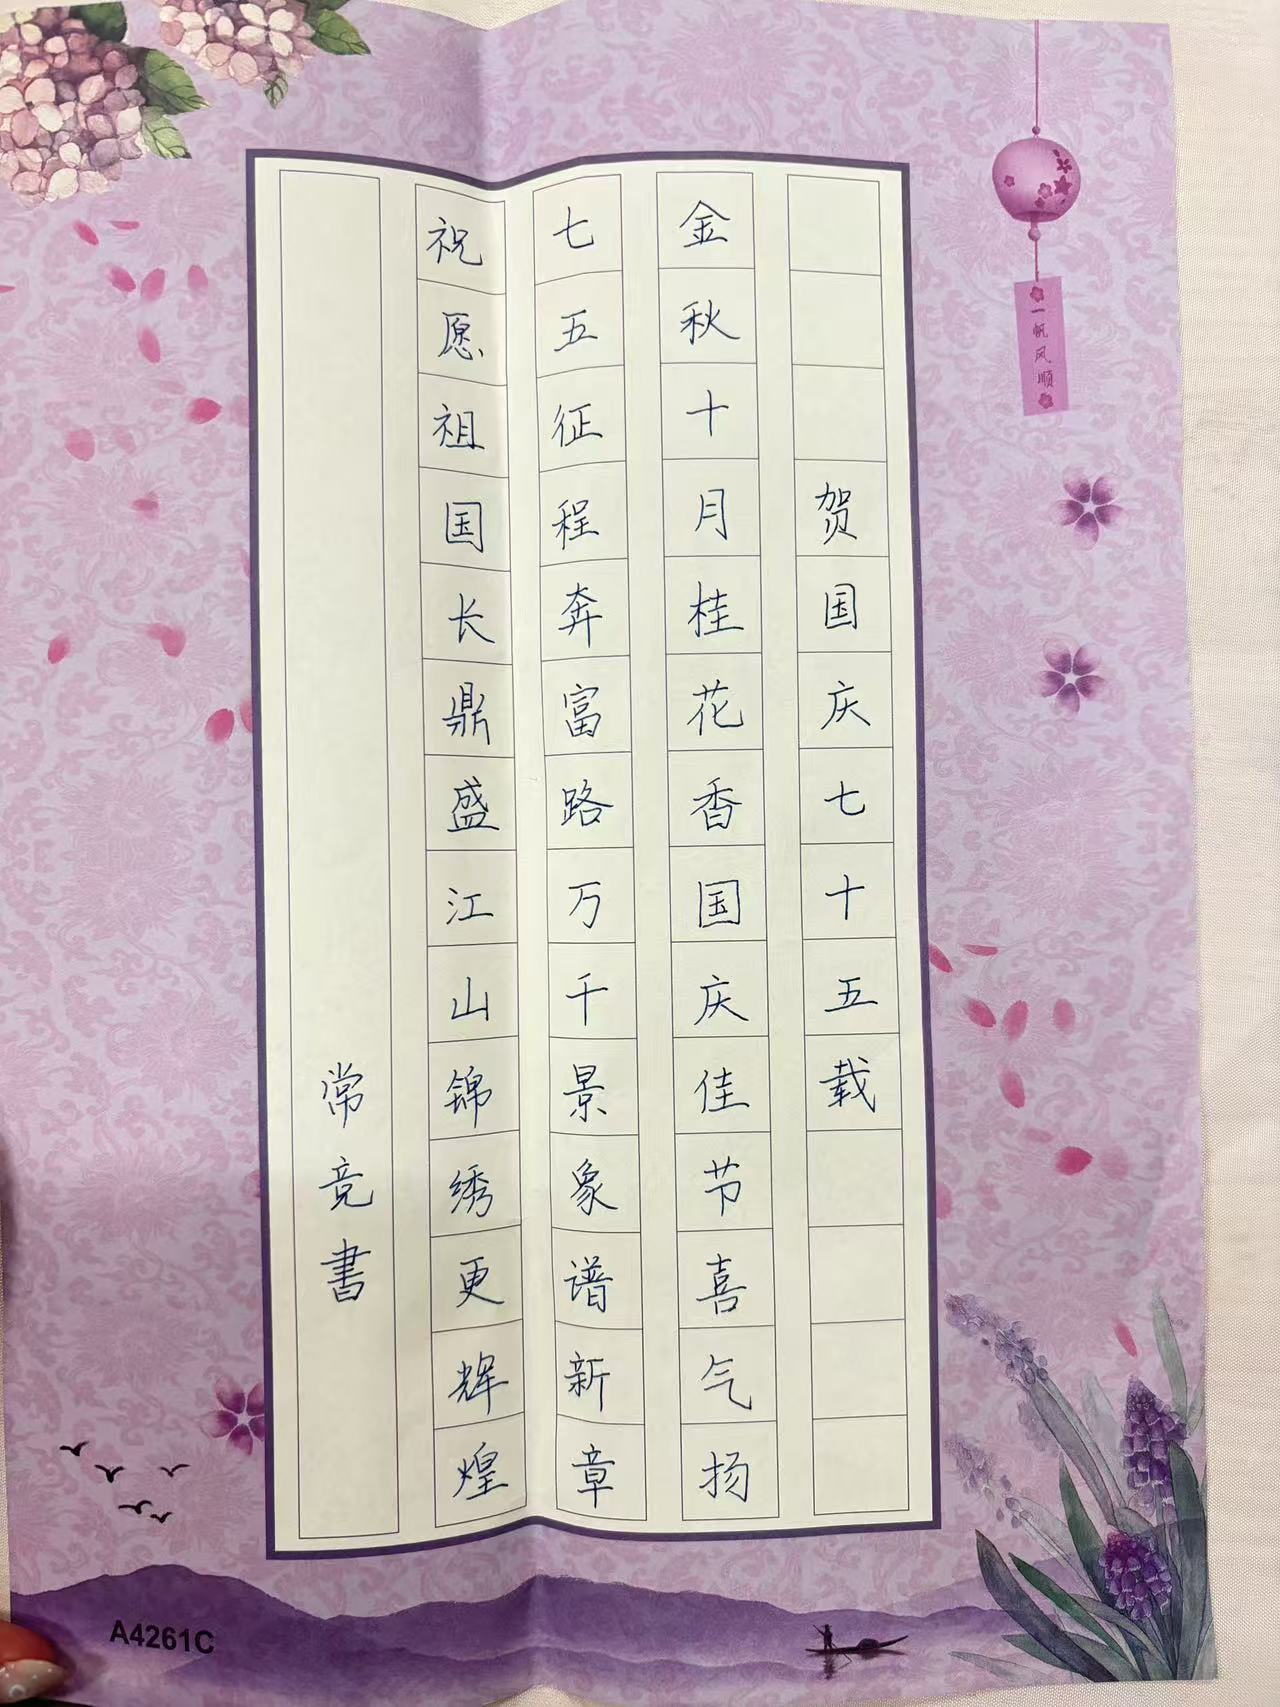 贺国庆七十五载
金秋十月桂花香国庆佳节喜气扬
七五征程奔富路万千景象谱新章
祝愿祖国长鼎盛江山锦绣更辉煌
常竞書
一帆风顺
A4261C